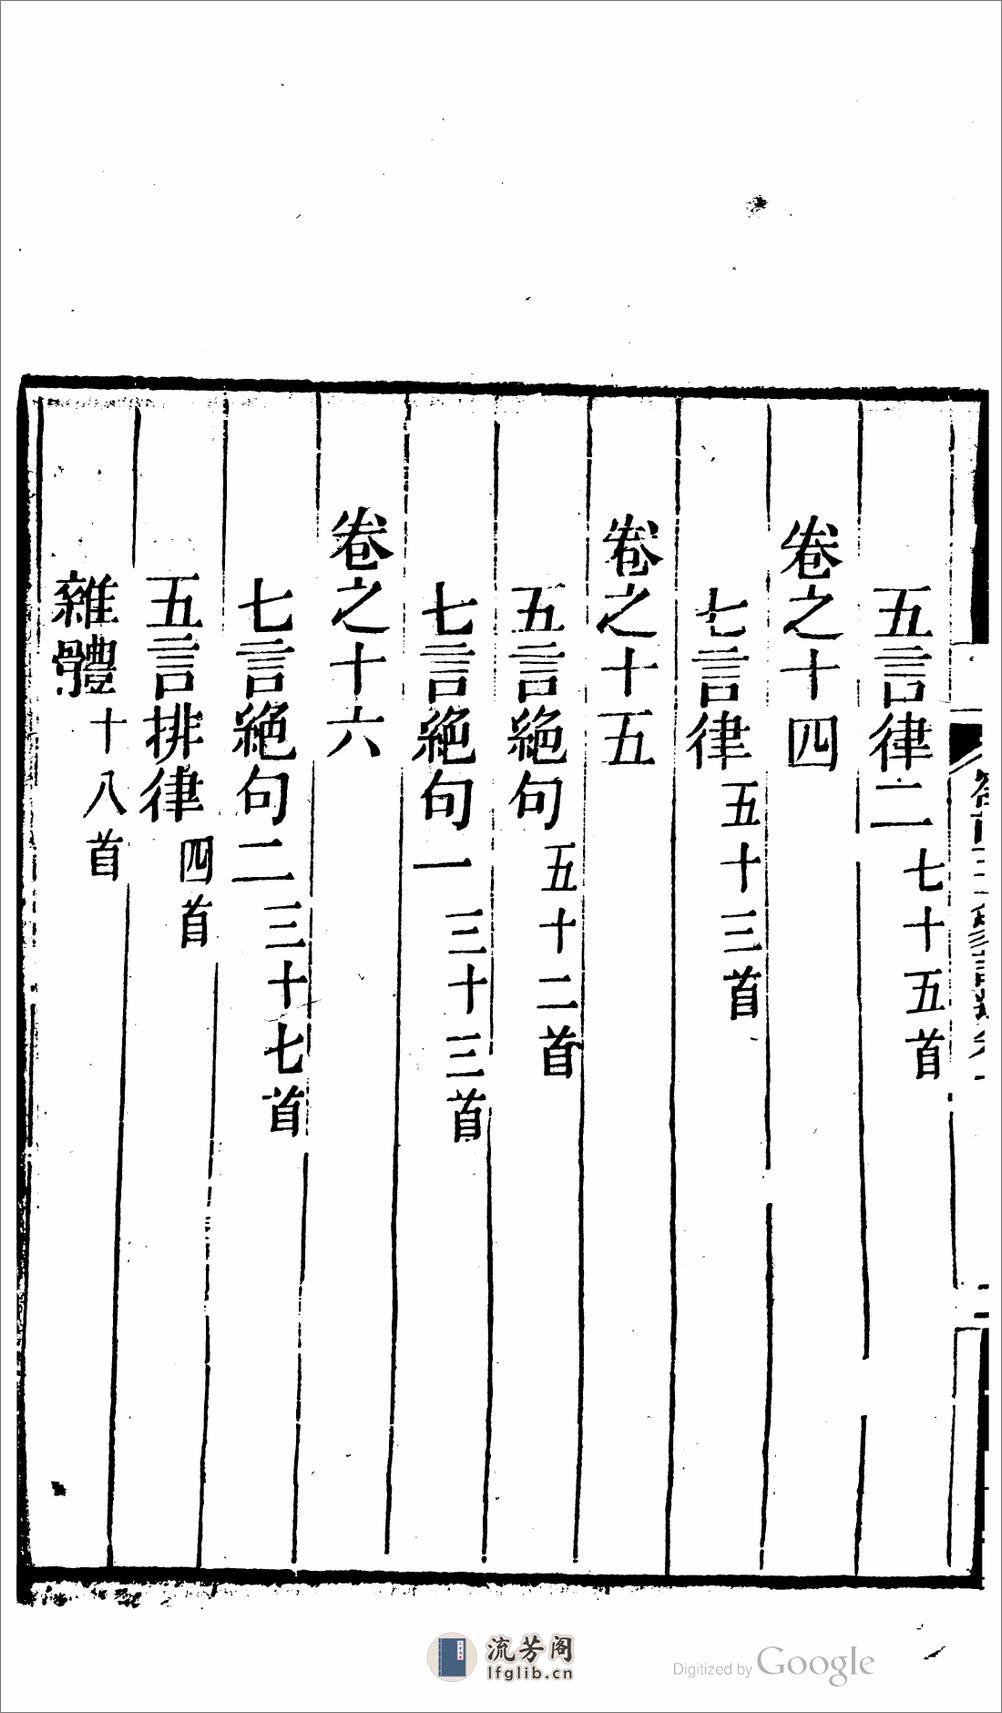 五言律二 七十五首
卷之十四
七言律 五十三首
卷之十五
五言絶句 五十二首
七言絶句一 三十三首
卷之十六
七言絶句二 三十七首
五言排律 四首
雜體 十八首
流芳阁
lfglib.cn
Digitized by Google